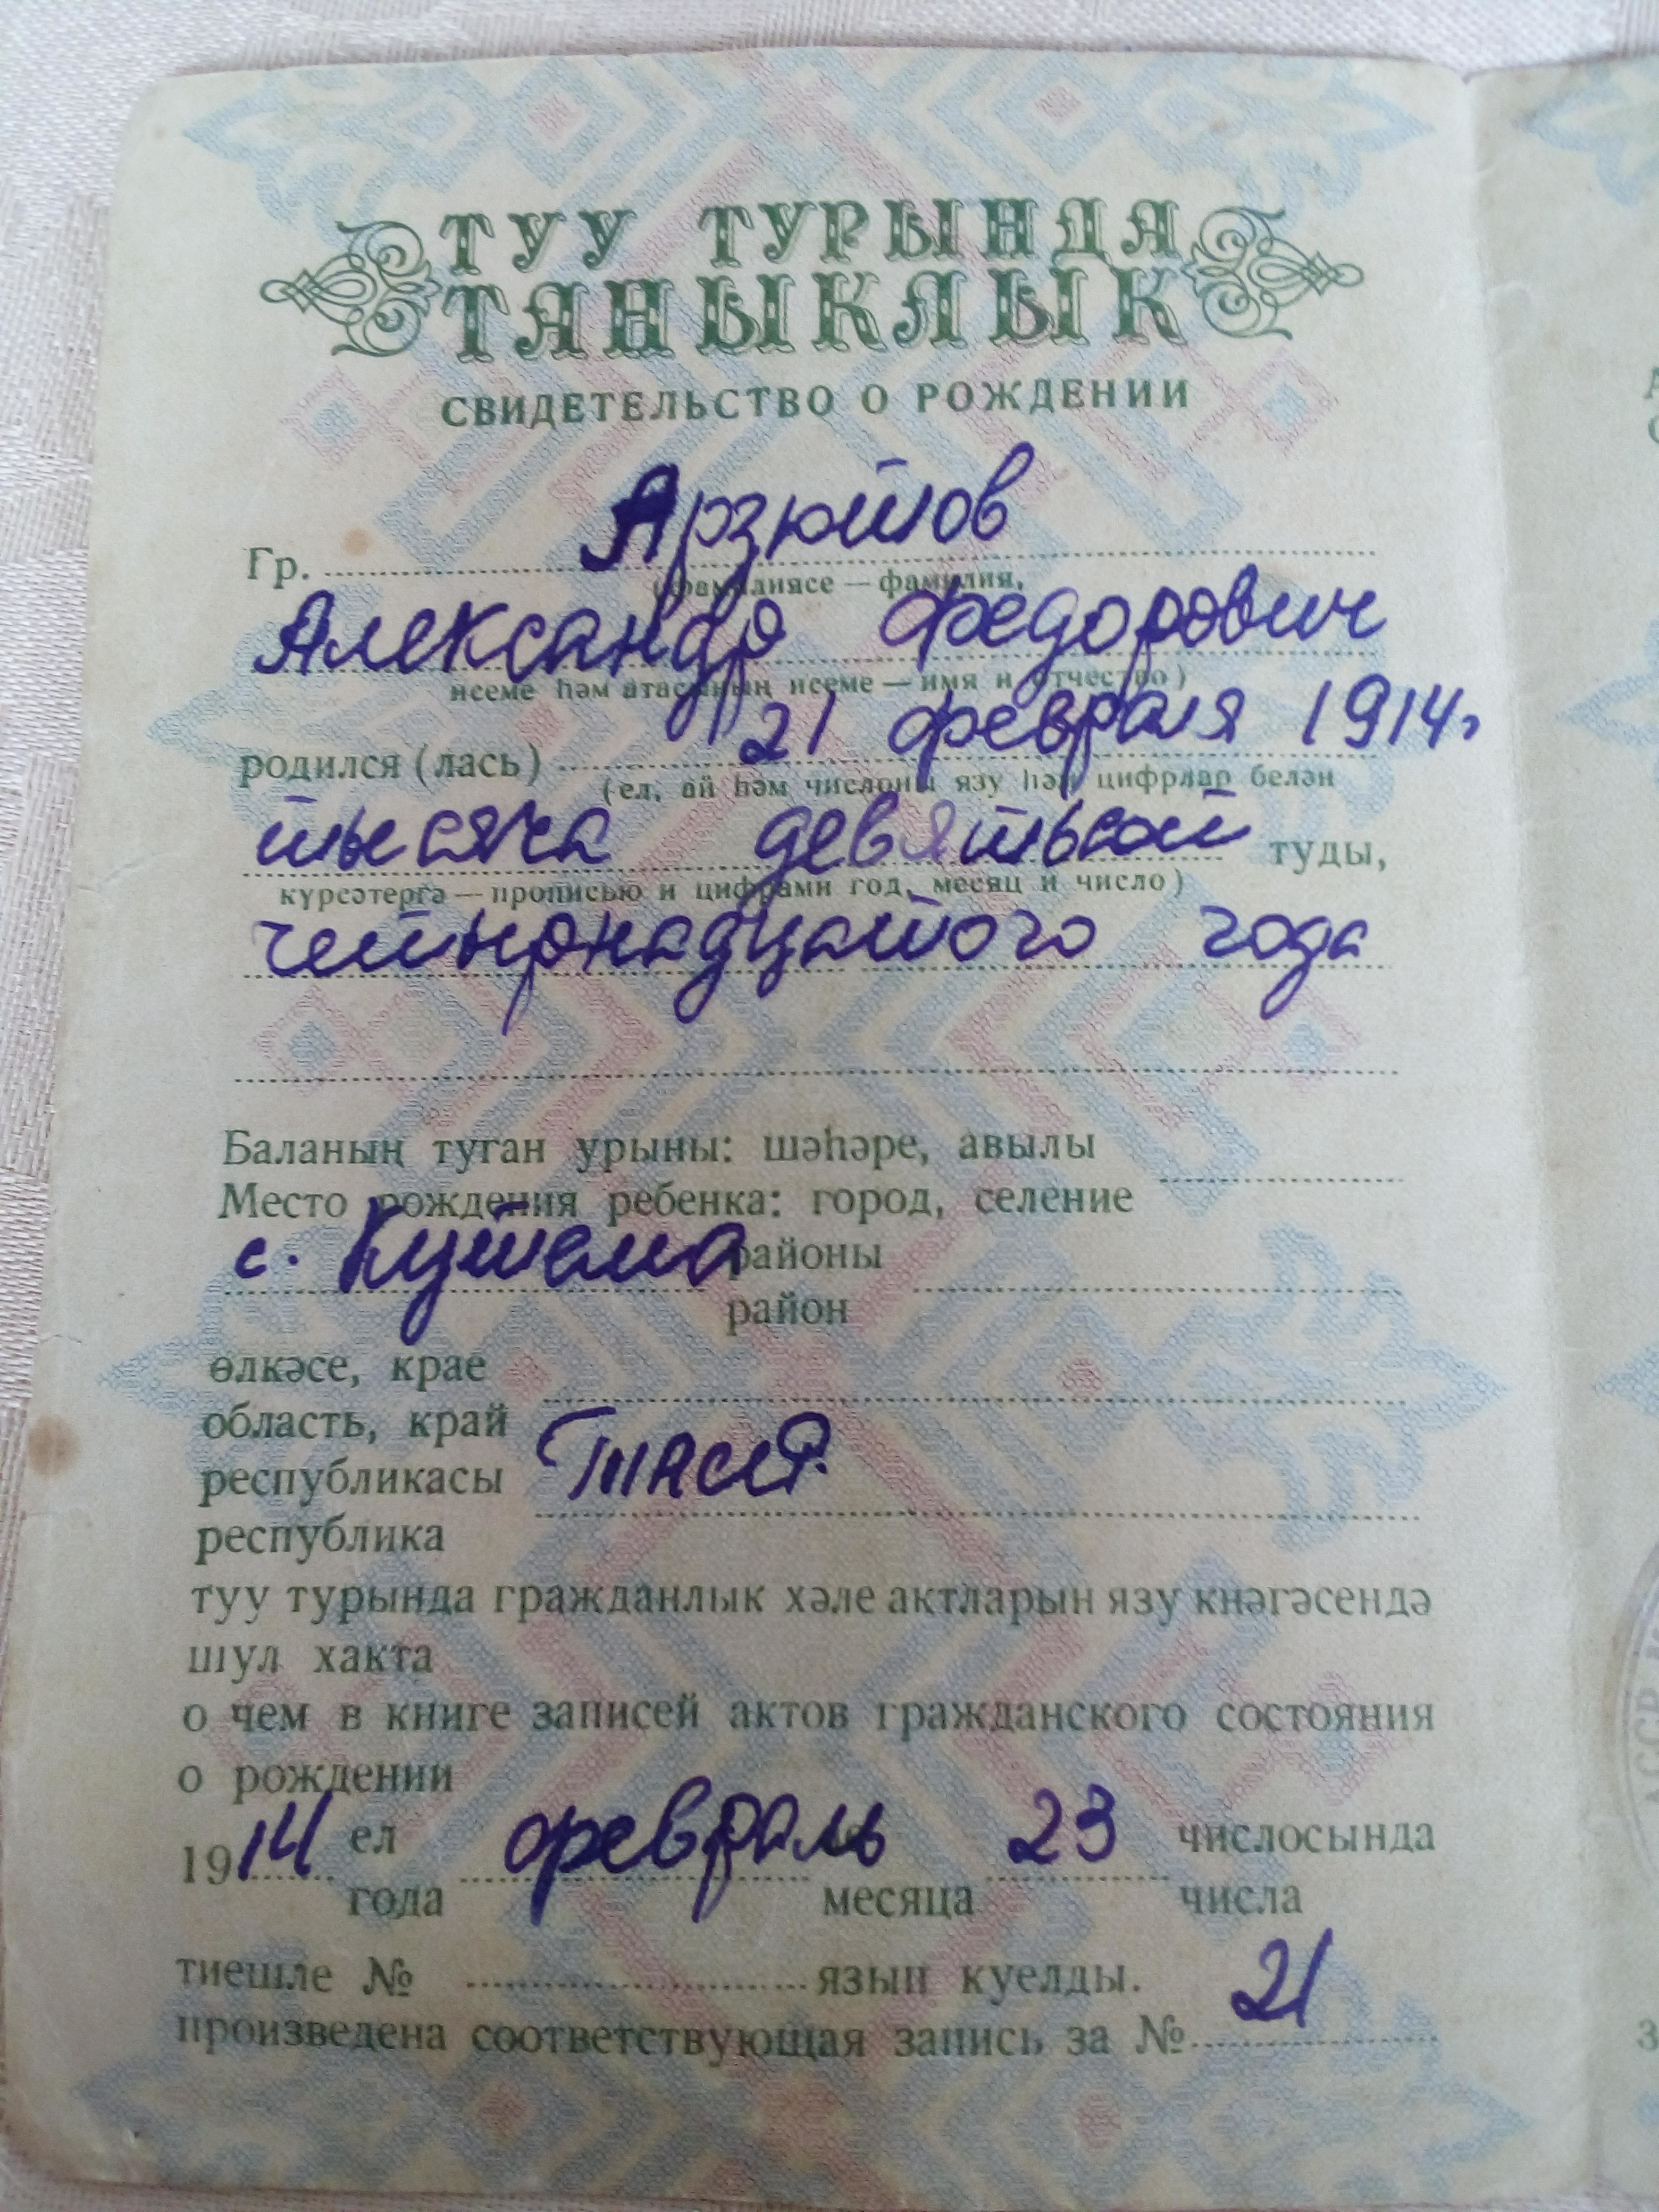 ТУУ ТУРЫНДА
ТАНЫКЛЫК
СВИДЕТЕЛЬСТВО О РОЖДЕНИИ
Гр. Арзютов
(фамилиясе — фамилия,
Александр Федорович
исеме һәм атасының исеме — имя и отчество)
родился (лась) 21 февраля 1914 г
(ел, ай һәм числоны язу һәм цифрлар белән
тысяча девятьсот туды,
күрсәтергә — прописью и цифрами год, месяц и число)
четырнадцатого года
Баланың туган урыны: шәһәре, авылы
Место рождения ребенка: город, селение
с. Кутема районы
район
өлкәсе, крае
область, край
республикасы ТАССР.
республика
туу турында гражданлык хәле актларын язу кнәгәсендә
шул хакта
о чем в книге записей актов гражданского состояния
о рождении
1914 ел февраль 23 числосында
года месяца числа
тиешле № язып куелды.
произведена соответствующая запись за № 21